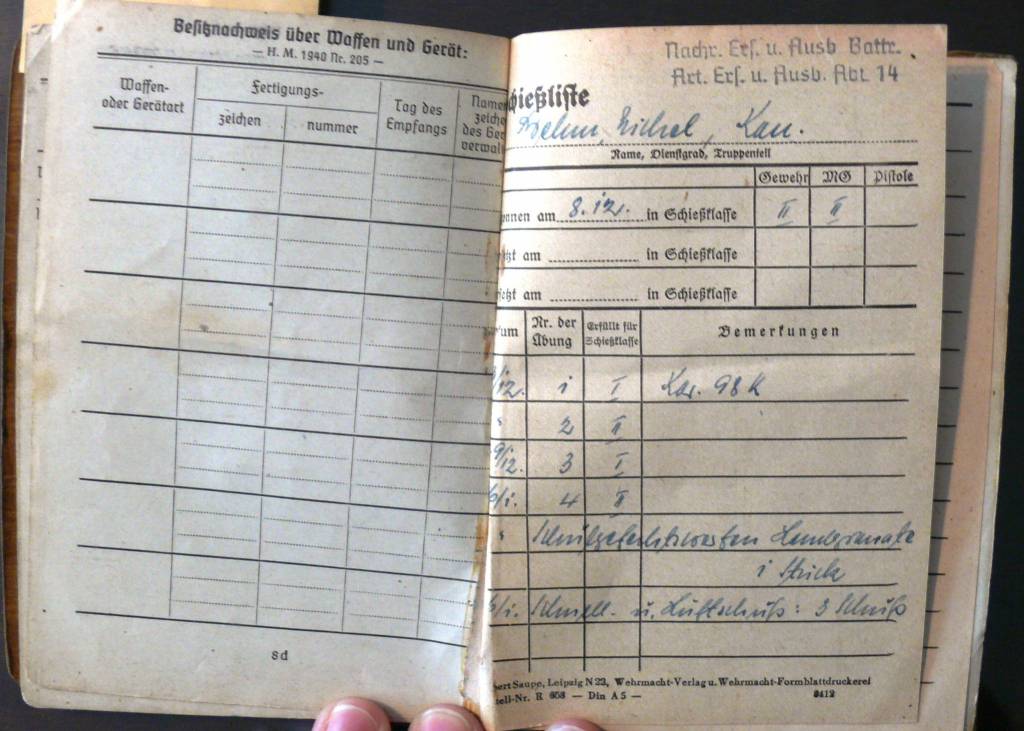 Besitznachweis über Waffen und Gerät:
— H. M. 1940 Nr. 205 —
Waffen-
oder Gerätart
Fertigungs-
zeichen
nummer
Tag des
Empfangs
Name
zeiche
des Ger
verwalt
8d
Nachr. Ers. u. Ausb Battr.
Art. Ers. u. Ausb. Abt. 14
chießliste
Kan.
Name, Dienstgrad, Truppenteil
Gewehr MG Pistole
nnen am 8.12. in Schießklasse II II
tzt am in Schießklasse
setzt am in Schießklasse
um
Nr. der
Übung
Erfüllt für
Schießklasse
Bemerkungen
/12. 1 I Kar. 98 K
" 2 II
9/12. 3 I
6/1. 4 II
" Schulgefechtswerfen Handgranate
1 Stück
6/1. Schnell- u. Luftschuß: 3 Schuß
bert Saupe, Leipzig N 22, Wehrmacht-Verlag u. Wehrmacht-Formblattdruckerei
tell-Nr. R 658 — Din A 5 —